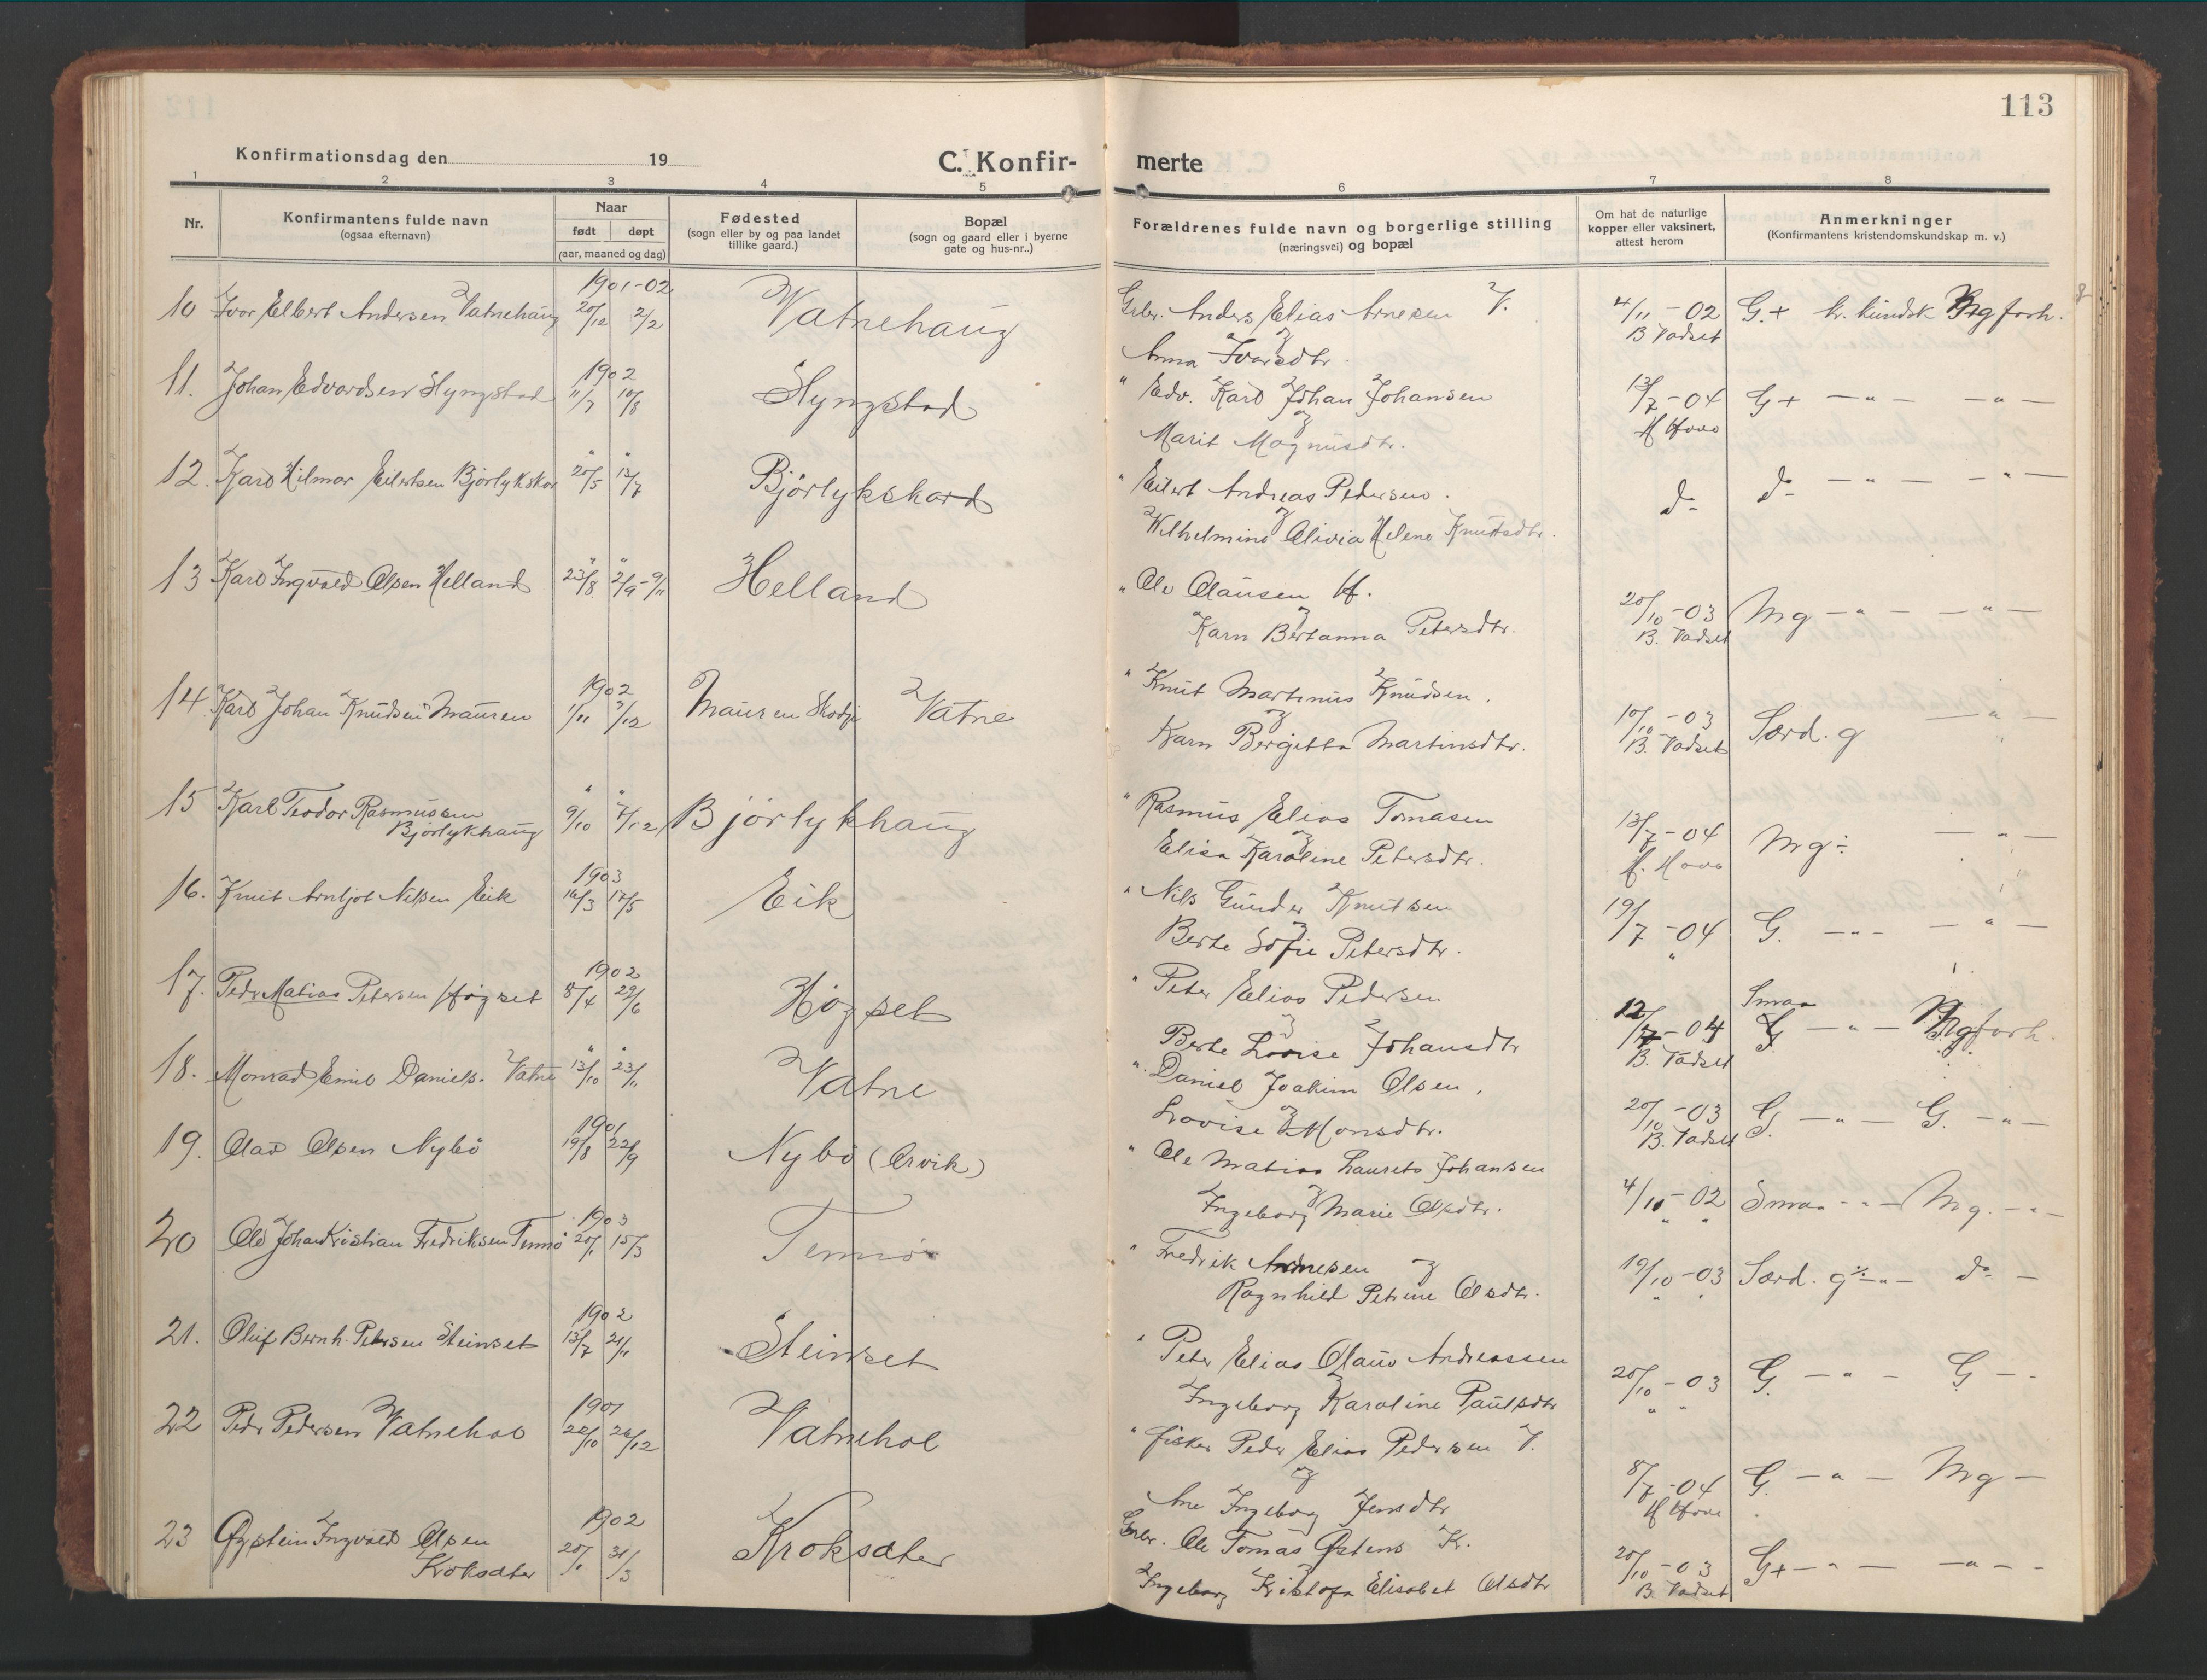 113
Konfirmationsdag den 19
C. Konfir- merte
1 2 3 4 5 6 7 8
Nr.
Konfirmantens fulde navn
(ogsaa efternavn)
Naar
født døpt
(aar, maaned og dag)
Fødested
(sogn eller by og paa landet
tillike gaard.)
Bopæl
(sogn og gaard eller i byerne
gate og hus-nr..)
Forældrenes fulde navn og borgerlige stilling
(næringsvei) og bopæl
Om hat de naturlige
kopper eller vaksinert,
attest herom
Anmerkninger
(Konfirmantens kristendomskundskap m. v.)
1901-02
10 Ivar Elbert Andersen Vatnehaug 20/12 2/2 Vatnehaug Grbr. Anders Elias Arnesen V. 4/11-02 G.+ kr. kundsk Mg forh.
og B Vadset
Anna Ivarsdtr.
1902
11. Johan Edvardsen Slyngstad 11/7 10/8 Slyngstad " Edv. Karl Johan Johansen 13/7-04 G+ —"— —"—
og
Marit Magnusdtr.
12. Karl Hilmar Eilertsen Bjørlykskar 20/5 13/7 Bjørlykskard " Eilert Andreas Pedersen. do do —"— —"—
og
Wilhelmine Olivia Helene Knutsdtr.
13 Karl Ingvald Olsen Helland 23/8 2/9-9/11 Helland " Ole Olausen H. 20/10-03 Mg —"— —"—
og B. Vadset
Karn Bertanna Petersdtr.
1902
14. Karl Johan Knudsen Mauren 1/11 7/12 Mauren Skodje Vatne " Knut Martinus Knudsen. 10/10-03 Særd. g —"—
og B. Vadset
Karn Bergitta Martinsdtr.
15 Karl Teodor Rasmussen
Bjørlykhaug 9/10 7/12 Bjørlykhaug " Rasmus Elias Tomasen 13/7-04 Mg÷ —"—
og
Elisa Karoline Petersdtr.
1903
16. Knut Arnljot Nilsen Eik 16/3 17/5 Eik " Nils Gunder Knutsen 19/7-04 G. —"— —"—
og
Berte Sofie Petersdtr.
1902
17. Peder Matias Petersen Høgset 8/4 29/6 Høgset " Peter Elias Pedersen 12/7-04 Smaa —"— Mg forh.
og B. Vadset
Berte Lovise Johansdtr
18. Monrad Emil Daniels. Vatne 13/10 23/11 Vatne " Daniel Joakim Olsen. 20/10-03 G. —"— G. —"—
og B. Vadset
Lovise E Monsdtr.
1901
19. Olav Olsen Nybø 19/8 22/9 Nybø (Ørvik) " Ole Matias Laurits Johansen 4/11-02 Smaa —"— Mg. —"—
og
Ingeborg Marie Olsdtr.
1903
20 Ole Johan Kristian Fredriksen Tennø 20/1 15/3 Tennø " Fredrik Arnesen og 19/10-03 Særd. g ÷ —"— do —
Ragnhild Petrine Olsdtr.
1902
21. Oluf Bernh. Petersen Steinset 13/7 21/11 Steinset " Peter Elias Olaus Andreassen 20/10-03 G. —"— G —
og
Ingeborg Karoline Paulsdtr
1901
22 Peder Pedersen Vatnehol 22/10 26/12 Vatnehol " fisker Peder Elias Pedersen V. 8/7-04 G. —"— Mg —
og
Ane Ingeborg Jensdtr
1902
23 Øystein Ingvald Olsen
Kroksæter 20/1 31/3 Kroksæter Grbr. Ole Tomas Østens K. 20/10-03 G+ —"— —"—
og B. Vadset
Ingeborg Kristofa Elisabet Olsdtr